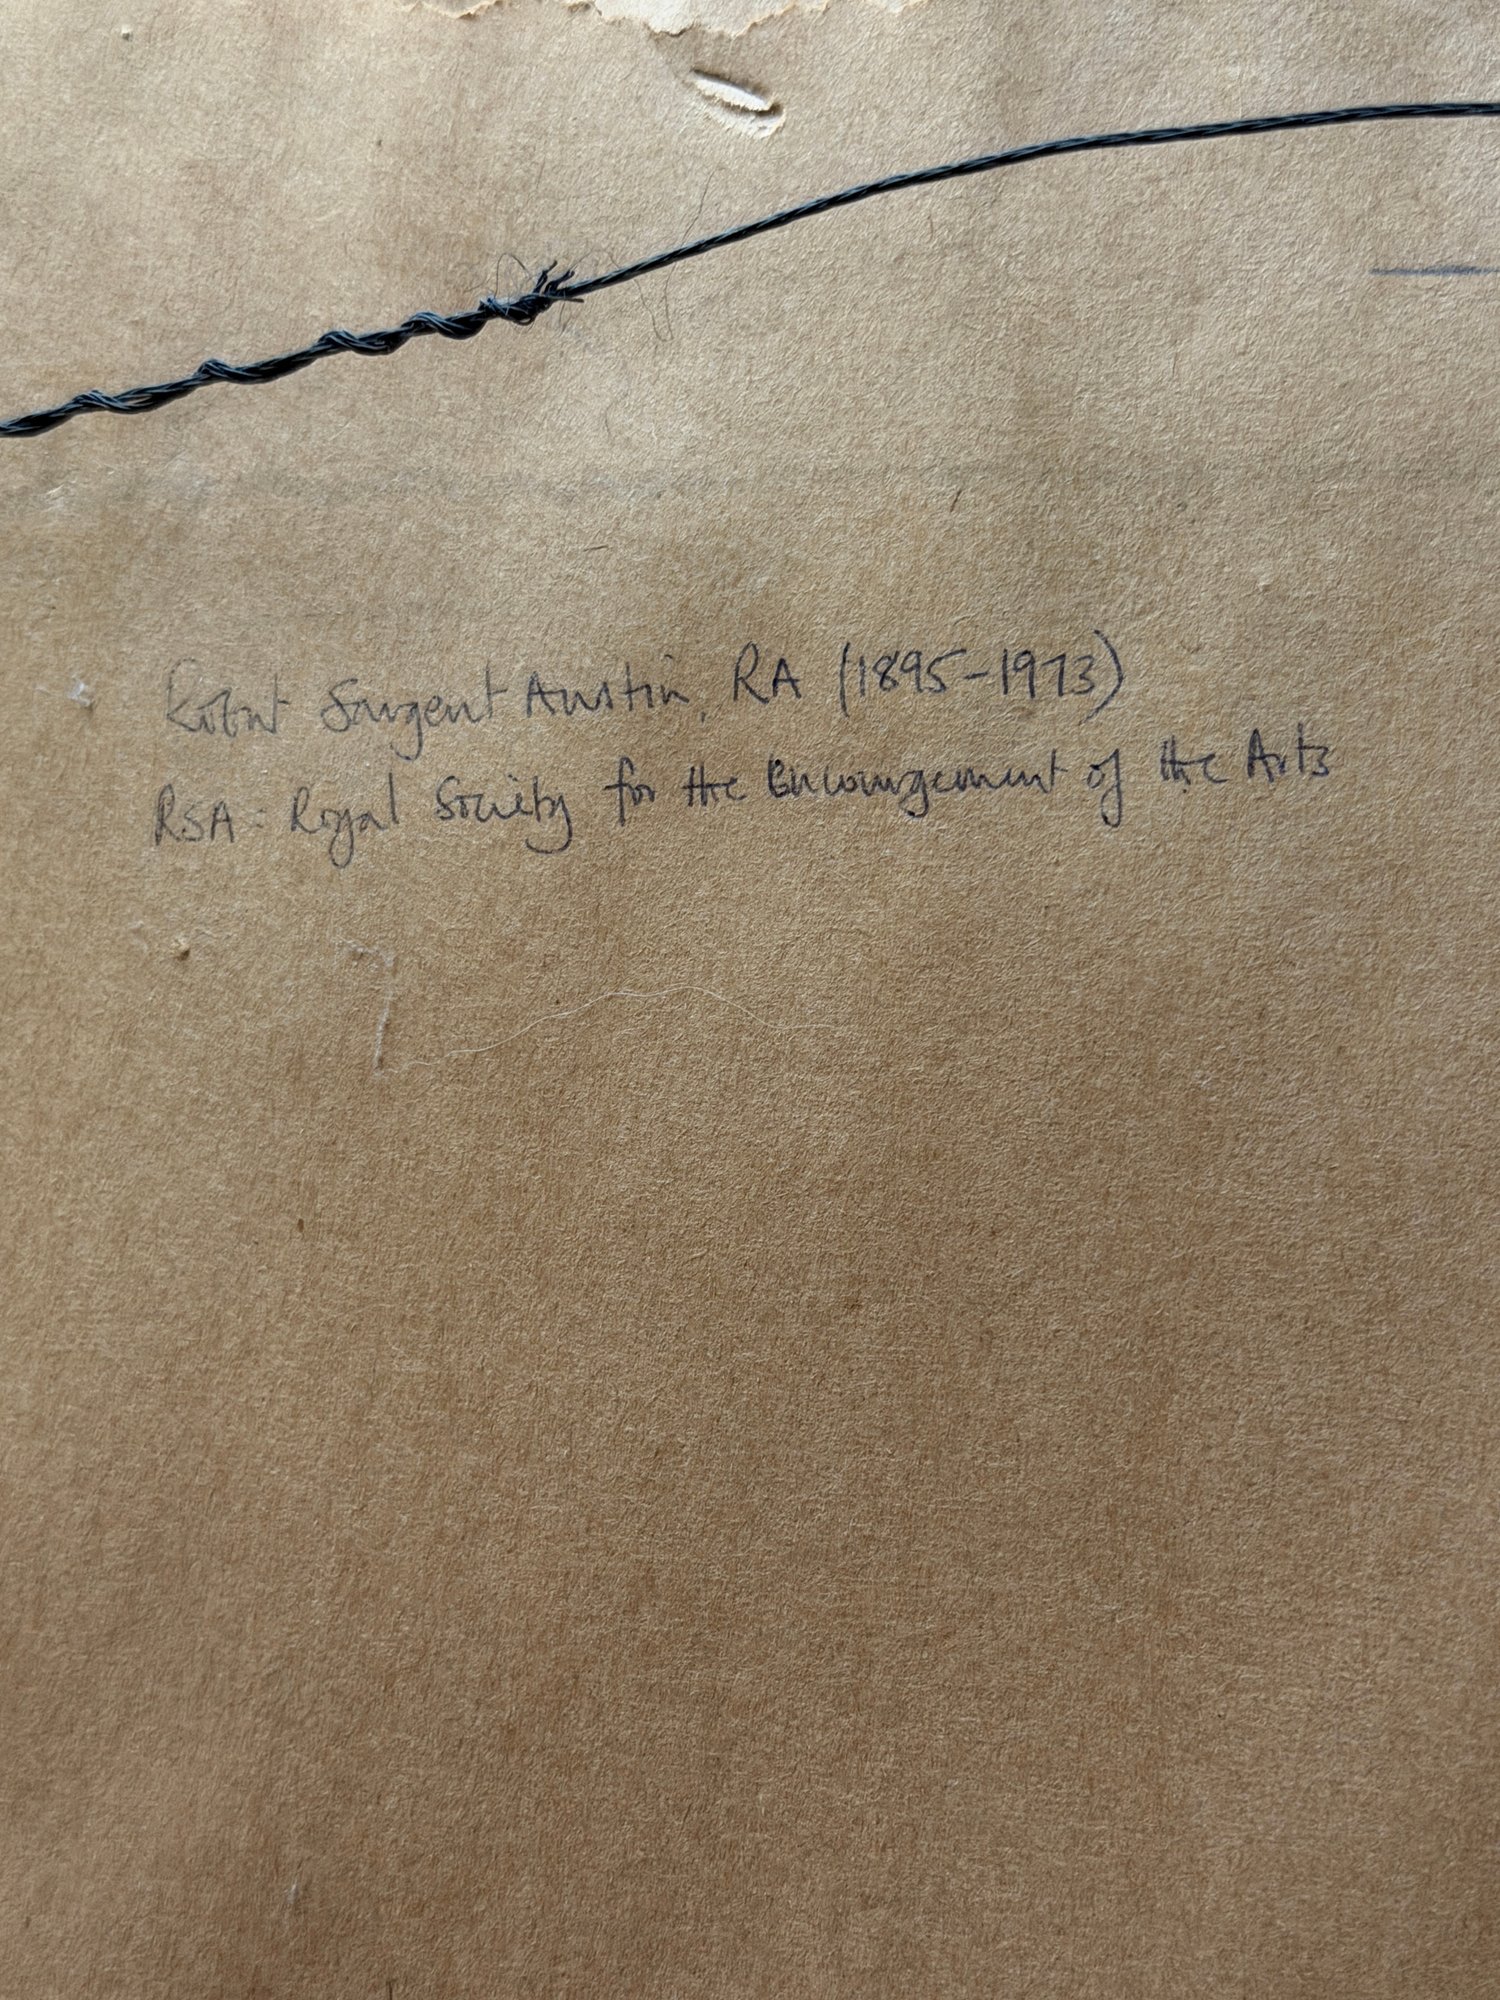 Robert Sargent Austin, RA (1895-1973)
RSA: Royal Society for the Encouragement of the Arts